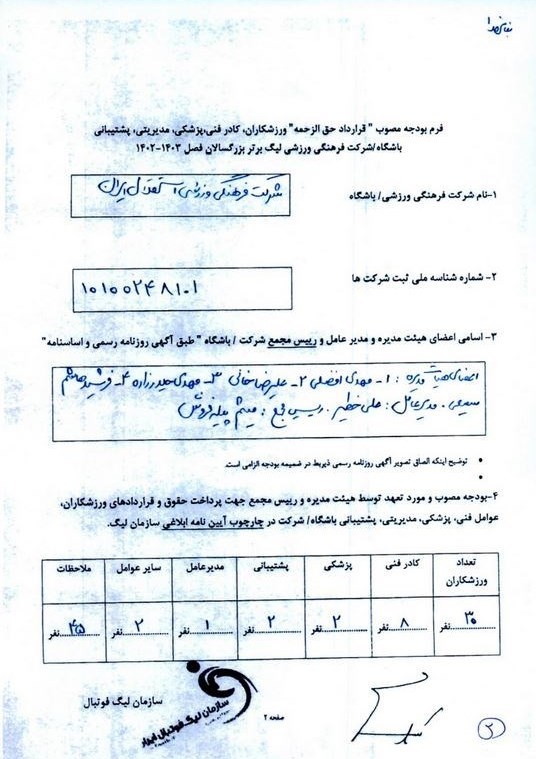 بنام خدا
فرم بودجه مصوب " قرارداد حق الزحمه" ورزشکاران، کادر فنی،پزشکی، مدیریتی، پشتیبانی
باشگاه/شرکت فرهنگی ورزشی لیگ برتر بزرگسالان فصل ۱۴۰۳-۱۴۰۲
۱-نام شرکت فرهنگی ورزشی/ باشگاه
شرکت فرهنگی ورزشی استقلال ایران
۲- شماره شناسه ملی ثبت شرکت ها
۱۰۱۰۰۲۴۸۱۰۱
۳- اسامی اعضای هیئت مدیره و مدیر عامل و رییس مجمع شرکت / باشگاه " طبق آگهی روزنامه رسمی و اساسنامه"
اعضای هیات مدیره : ۱- مهدی افضلی ۲- علیرضا خانی ۳- مهدی حیدرزاده ۴- فرشید
سمیعی . مدیرعامل : علی خطیر . رییس مجمع : میثم پیله فروش
• توضیح اینکه الصاق تصویر آگهی روزنامه رسمی ذیربط در ضمیمه بودجه الزامی است.
۴-بودجه مصوب و مورد تعهد توسط هیئت مدیره و رییس مجمع جهت پرداخت حقوق و قراردادهای ورزشکاران،
عوامل فنی، پزشکی، مدیریتی، پشتیبانی باشگاه/ شرکت در چارچوب آیین نامه ابلاغی سازمان لیگ.
تعداد ورزشکاران کادر فنی پزشکی پشتیبانی مدیرعامل سایر عوامل ملاحظات
۳۰ نفر ۸ نفر ۲ نفر ۲ نفر ۱ نفر ۲ نفر ۴۵ نفر
سازمان لیگ فوتبال
سازمان لیگ فوتبال ایران
صفحه ۲
۲